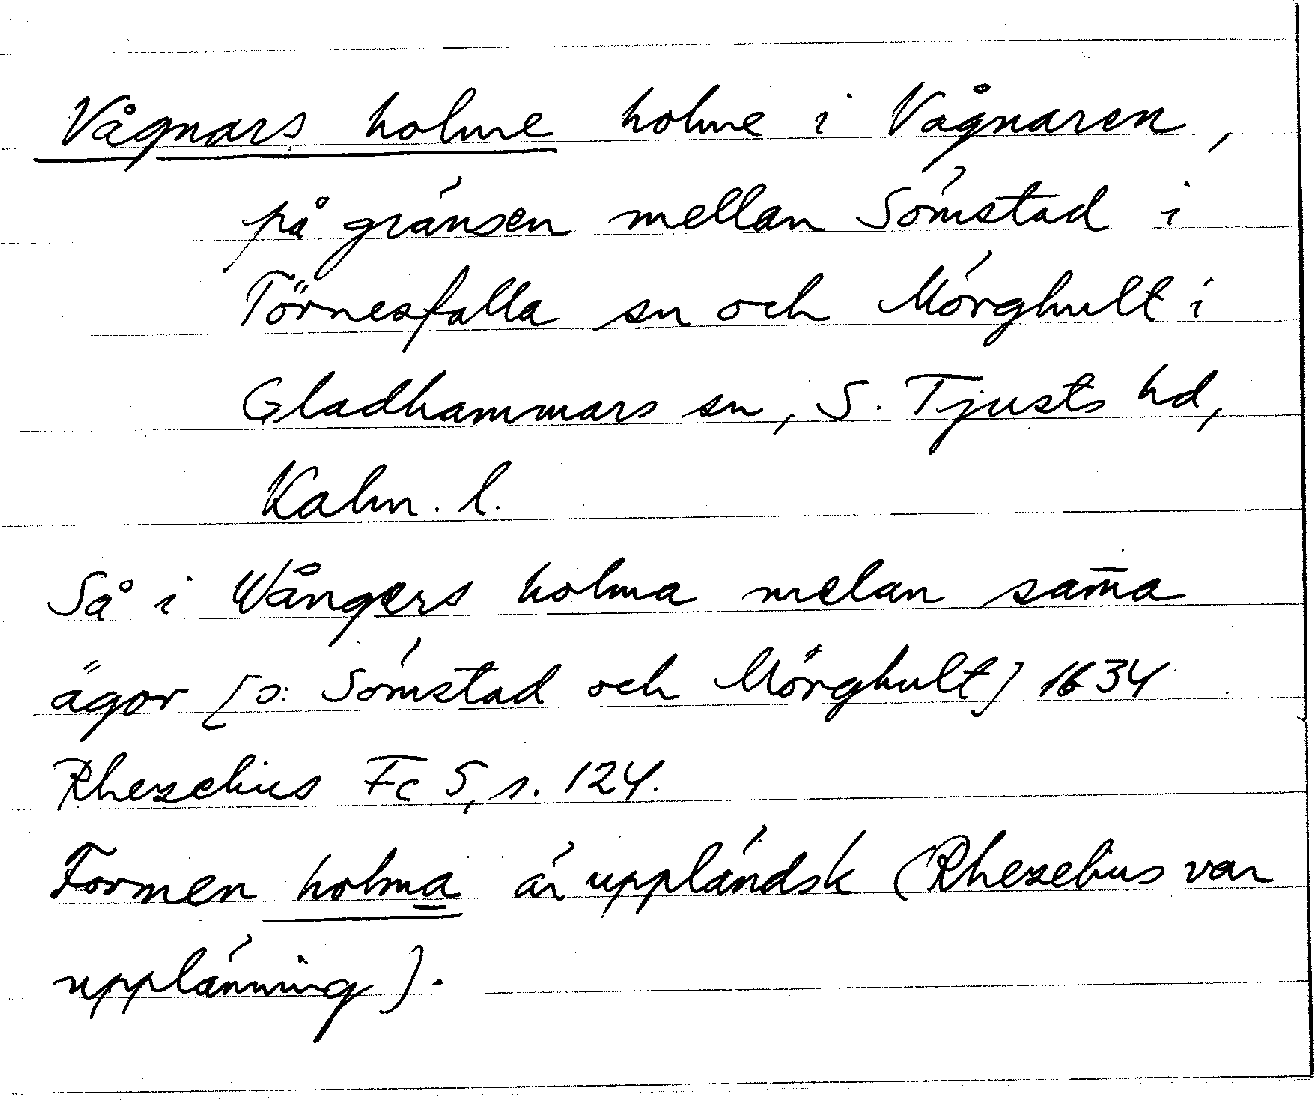 Vågnars holme holme i Vågnaren,
på gränsen mellan Sömstad i
Törnesfalla sn och Mörghult i
Gladhammars sn, S. Tjusts hd,
Kalm. l.
Så i Wångers holma melan sam̅a
ägor [ɔ: Sömstad och Mörghult] 1634
Rhezelius Fc 5, s. 124.
Formen holma är uppländsk (Rhezelius var
upplänning).